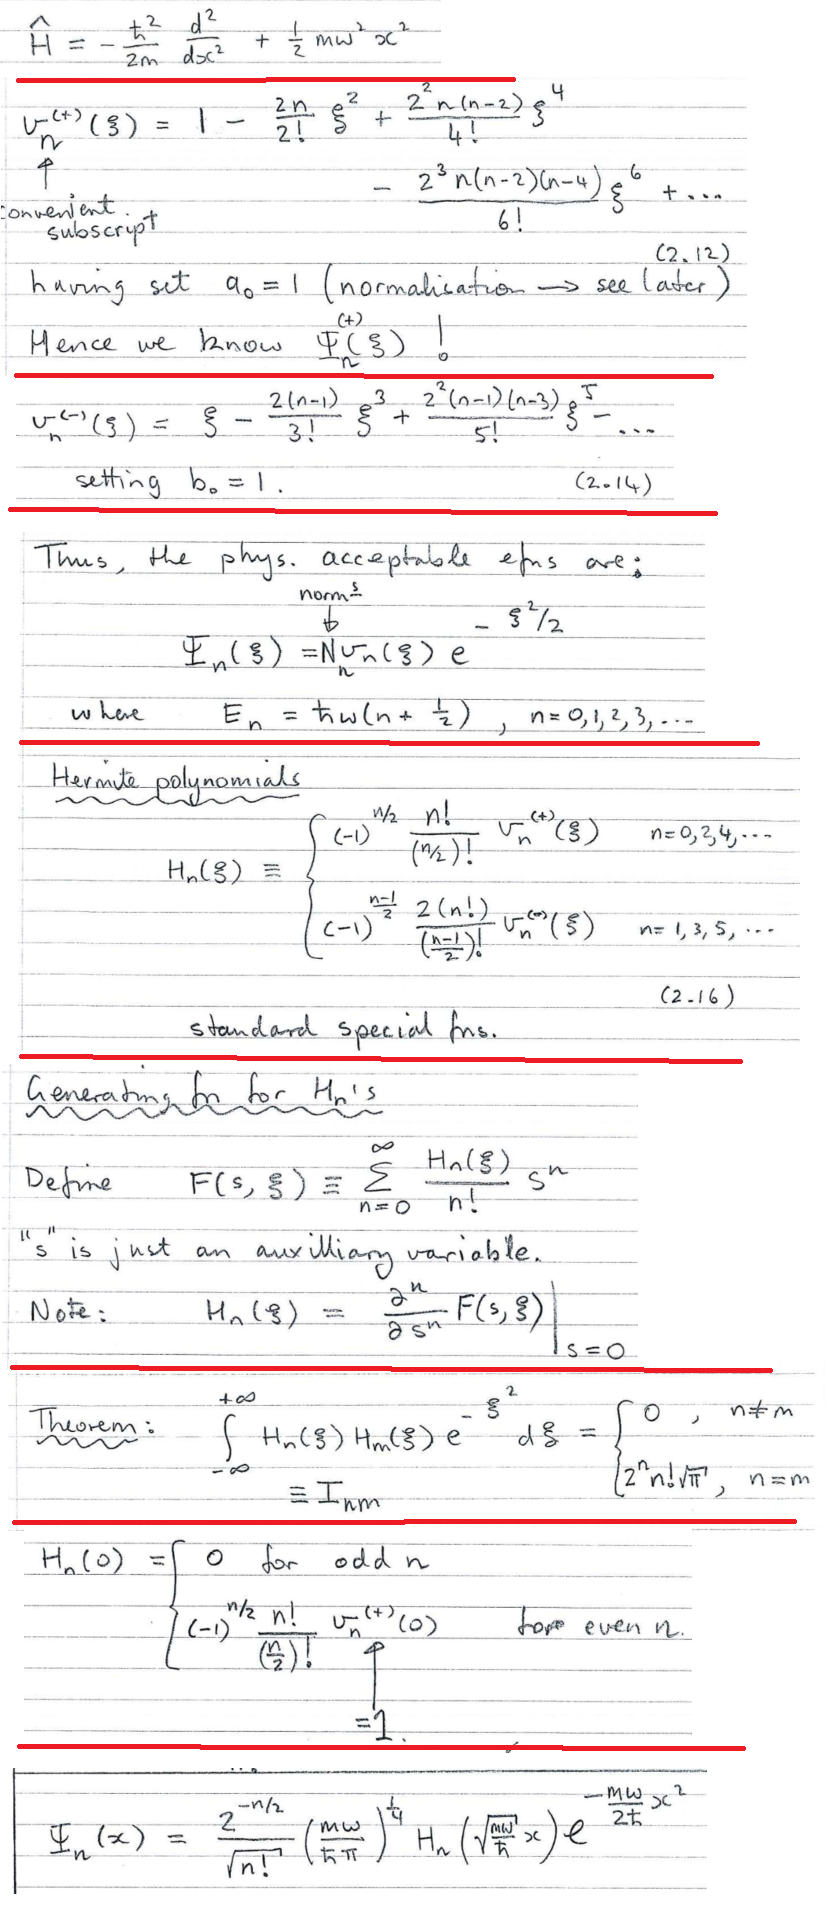 Ĥ = - ħ²/2m d²/dx² + ½ mω² x²
v_n^(+)(ξ) = 1 - 2n/2! ξ² + 2² n(n-2)/4! ξ⁴
- 2³ n(n-2)(n-4)/6! ξ⁶ + ...
convenient subscript
(2.12)
having set a₀ = 1 (normalisation → see later)
Hence we know Ψ_n^(+)(ξ) !
v_n^(-)(ξ) = ξ - 2(n-1)/3! ξ³ + 2²(n-1)(n-3)/5! ξ⁵ - ...
setting b₀ = 1. (2.14)
Thus, the phys. acceptable efns are:
normˢ
Ψ_n(ξ) = N_n v_n(ξ) e^(-ξ²/2)
where E_n = ħω(n + ½), n = 0,1,2,3,...
Hermite polynomials
H_n(ξ) ≡ { (-1)^(n/2) n!/(n/2)! v_n^(+)(ξ) n=0,2,4,...
(-1)^((n-1)/2) 2(n!)/((n-1)/2)! v_n^(-)(ξ) n= 1,3,5,...
(2.16)
standard special fns.
Generating fn for H_n's
Define F(s, ξ) ≡ Σ_{n=0}^∞ H_n(ξ)/n! sⁿ
"s" is just an auxilliary variable.
Note: H_n(ξ) = ∂ⁿ/∂sⁿ F(s,ξ)|_{s=0}
Theorem: ∫_{-∞}^{+∞} H_n(ξ) H_m(ξ) e^(-ξ²) dξ = { 0, n≠m
2ⁿ n! √π, n=m
≡ I_nm
H_n(0) = { 0 for odd n
(-1)^(n/2) n!/(n/2)! v_n^(+)(0) for even n.
=1.
Ψ_n(x) = 2^(-n/2)/√n! (mω/ħπ)^(1/4) H_n(√(mω/ħ) x) e^(-mω/2ħ x²)